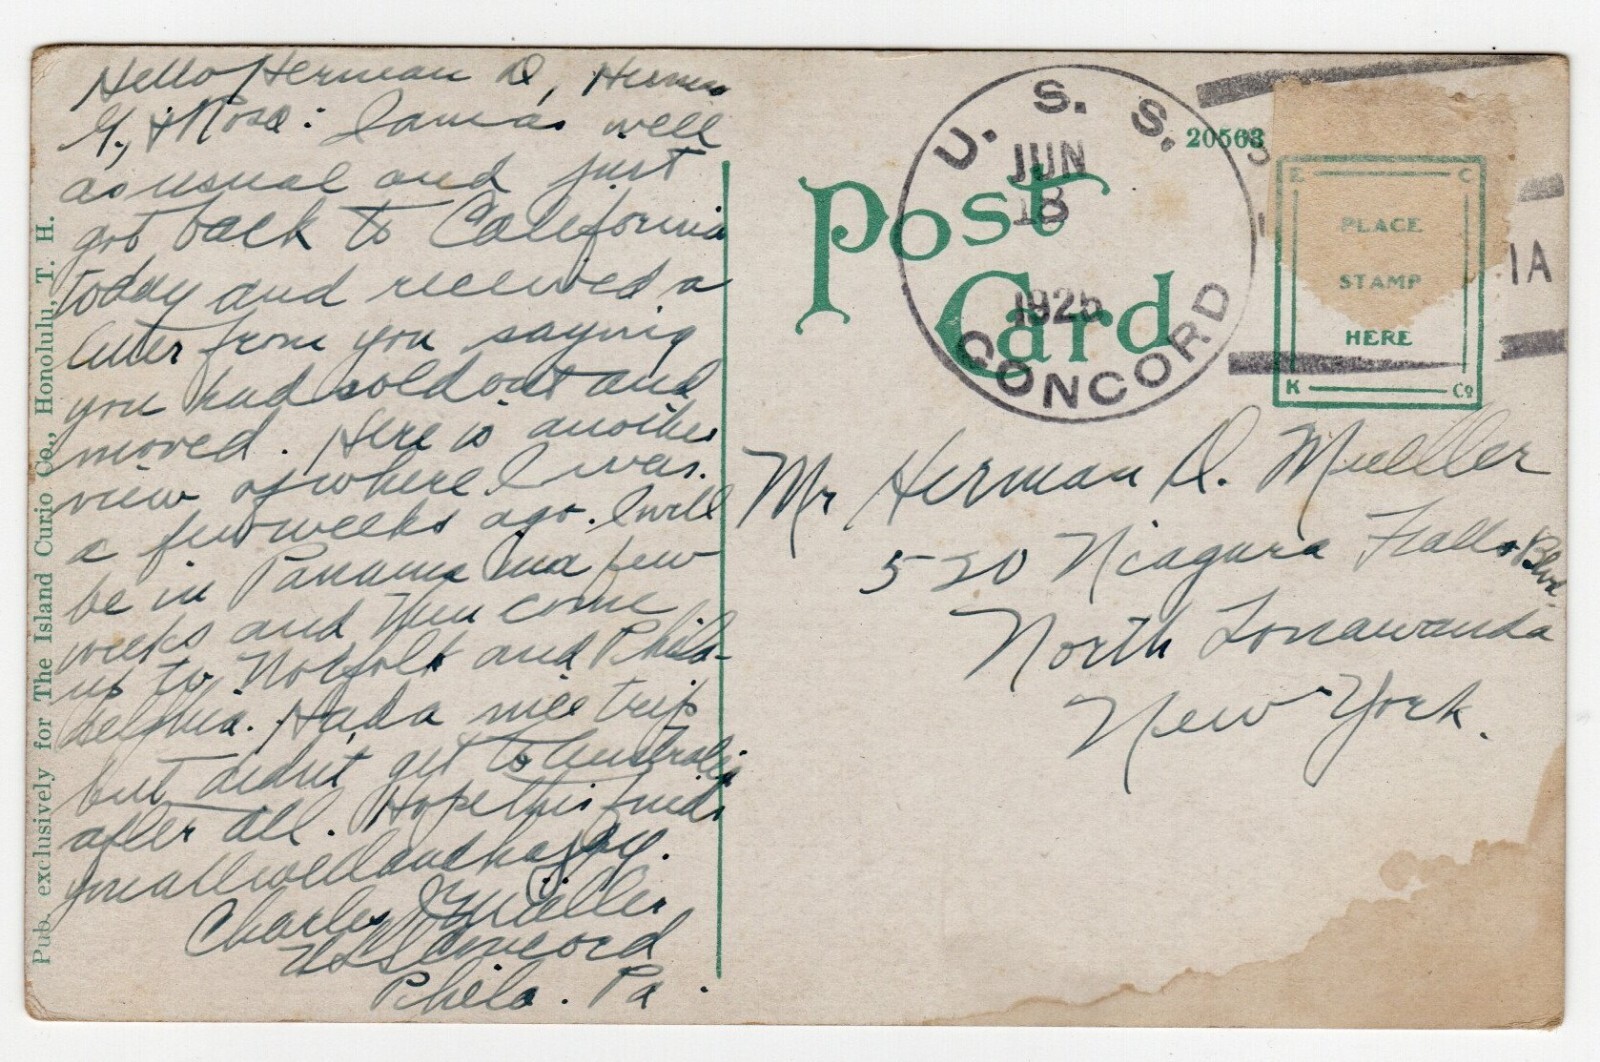 Hello Herman D, Herman
G., & Rosa: I am as well
as usual and just
got back to California
today and received a
letter from you saying
you had sold out and
moved. Here is another
view of where I was
a few weeks ago. I will
be in Panama in a few
weeks and then come
up to Norfolk and Phila-
delphia. Had a nice trip
but didn't get to Australia
after all. Hope this finds
you all well and happy.
Charles Mueller
USS Concord
Phila. Pa.
Pub. exclusively for The Island Curio Co., Honolulu, T. H.
Post Card
20563
U. S. S.
JUN
18
1925
CONCORD
E C
PLACE
STAMP
HERE
K Co
IA
Mr Herman D. Mueller
520 Niagara Falls Blvd.
North Tonawanda
New York.